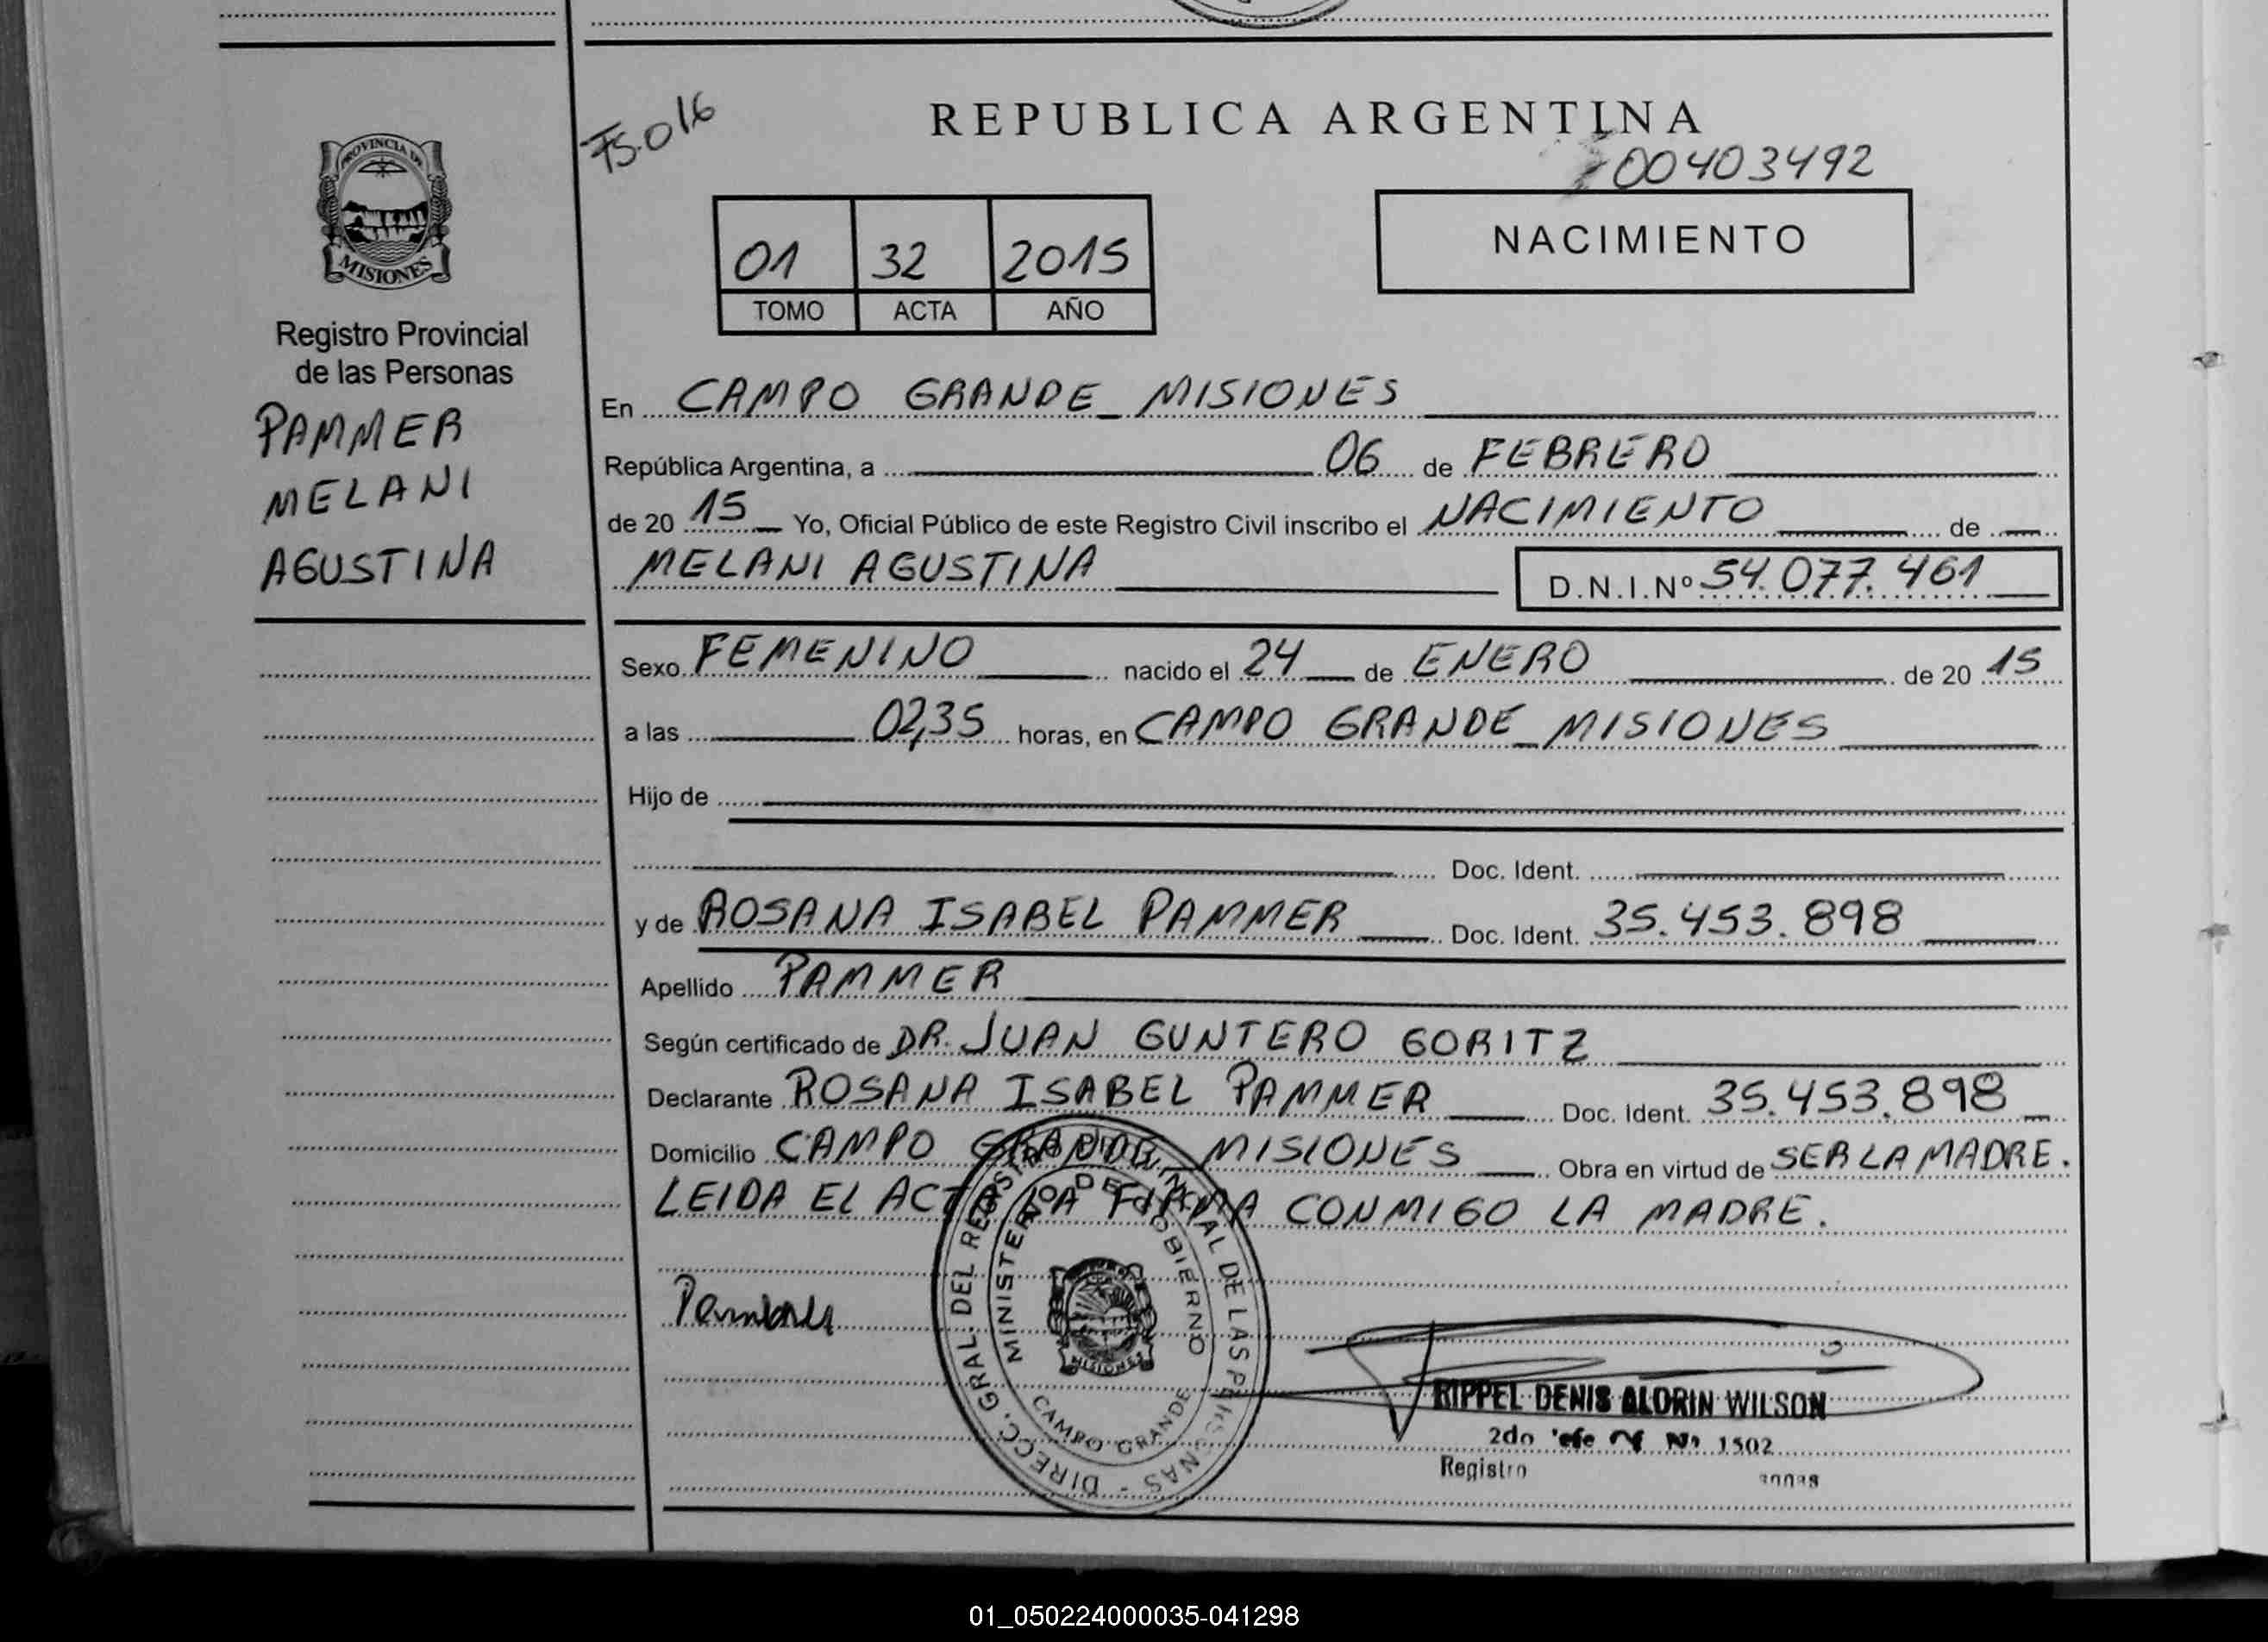 REPUBLICA ARGENTINA
FS.016
00403492
PROVINCIA DE
MISIONES
01 32 2015
TOMO ACTA AÑO
NACIMIENTO
Registro Provincial
de las Personas
PAMMER
MELANI
AGUSTINA
En CAMPO GRANDE_MISIONES
República Argentina, a 06 de FEBRERO
de 20 15 Yo, Oficial Público de este Registro Civil inscribo el NACIMIENTO de
MELANI AGUSTINA D.N.I.Nº 54.077.461
Sexo FEMENINO nacido el 24 de ENERO de 20 15
a las 02,35 horas, en CAMPO GRANDE_MISIONES
Hijo de
Doc. Ident.
y de ROSANA ISABEL PAMMER Doc. Ident. 35.453.898
Apellido PAMMER
Según certificado de DR. JUAN GUNTERO GORITZ
Declarante ROSANA ISABEL PAMMER Doc. Ident. 35.453.898
Domicilio CAMPO GRANDE_MISIONES Obra en virtud de SER LA MADRE.
LEIDA EL ACTA LA FIRMA CONMIGO LA MADRE.
DIRECC. GRAL. DEL REGISTRO PROVINCIAL DE LAS PERSONAS -
MINISTERIO DE GOBIERNO
MISIONES
CAMPO GRANDE
RIPPEL DENIS ALORIN WILSON
2do Nº 1502
Registro
01_050224000035-041298